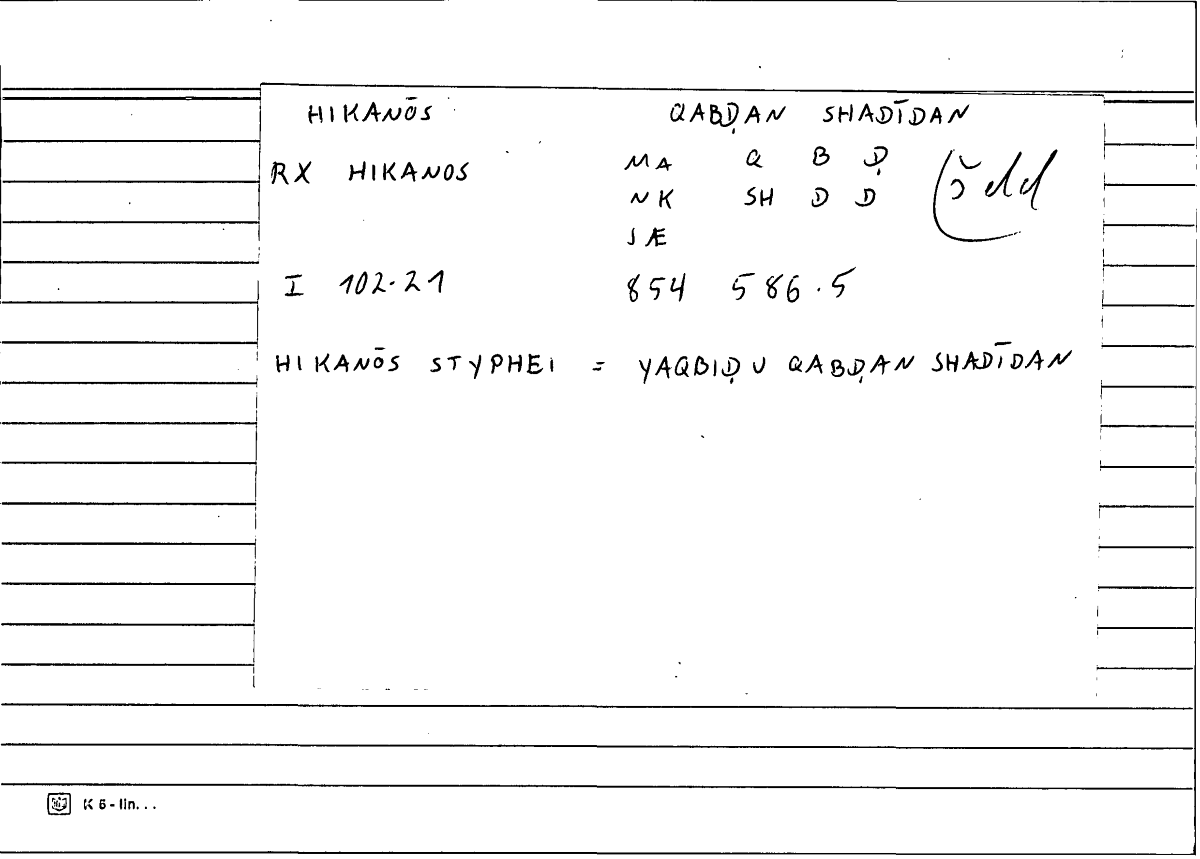 HIKANŌS QABḌAN SHADĪDAN
RX HIKANOS MA Q B Ḍ
NK SH D D šdd
JÆ
I 102.21 854 586.5
HIKANŌS STYPHEI = YAQBIḌU QABḌAN SHADĪDAN
K 6-lin...